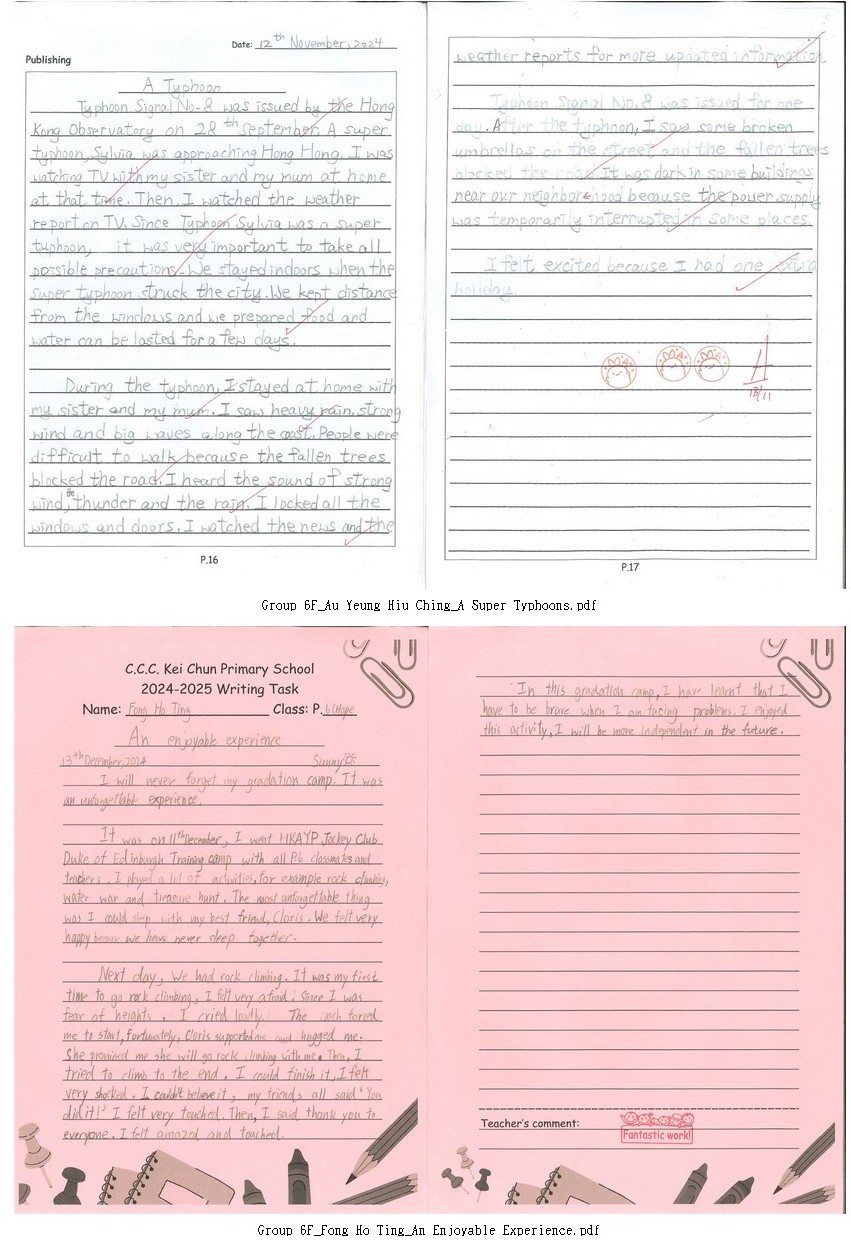 Date: 12th November, 2024
Publishing
A Typhoon
Typhoon Signal No. 8 was issued by the Hong
Kong Observatory on 28th September. A super
typhoon, Sylvia was approaching Hong Hong. I was
watching TV with my sister and my mum at home
at that time. Then, I watched the weather
report on TV. Since Typhoon Sylvia was a super
typhoon, it was very important to take all
possible precautions. We stayed indoors when the
super typhoon struck the city. We kept distance
from the windows and we prepared food and
water can be lasted for a few days.
During the typhoon, I stayed at home with
my sister and my mum. I saw heavy rain, strong
wind and big waves along the coast. People were
difficult to walk because the fallen trees
blocked the road. I heard the sound of strong
wind, the thunder and the rain. I locked all the
windows and doors. I watched the news and the
P.16
weather reports for more updated information.
Typhoon Signal No. 8 was issued for one
day. After the typhoon, I saw some broken
umbrellas on the street and the fallen trees
blocked the road. It was dark in some buildings
near our neighborhood because the power supply
was temporarily interrupted in some places.
I felt excited because I had one extra
holiday.
A
13/11
P.17
Group 6F_Au Yeung Hiu Ching_A Super Typhoons.pdf
C.C.C. Kei Chun Primary School
2024-2025 Writing Task
Name: Fong Ho Ting Class: P. 6 Hope
An enjoyable experience
13th December, 2024 Sunny
I will never forget my gradation camp. It was
an unforgettable experience.
It was on 11th December, I went HKAYP Jockey Club
Duke of Edinburgh Training camp with all P.6 classmates and
teachers. I played a lot of activities, for example rock climbing,
water war and treasure hunt. The most unforgettable thing
was I could sleep with my best friend, Cloris. We felt very
happy because we have never sleep together.
Next day, We had rock climbing. It was my first
time to go rock climbing, I felt very afraid! Since I was
fear of heights, I cried loudly. The coach forced
me to start, fortunately, Cloris supported me and hugged me.
She promised me she will go rock climbing with me. Then, I
tried to climb to the end. I could finish it, I felt
very shocked. I couldn't believe it, my friends all said "You
did it!" I felt very touched. Then, I said thank you to
everyone. I felt amazed and touched.
In this gradation camp, I have learnt that I
have to be brave when I am facing problems. I enjoyed
this activity, I will be more independent in the future.
Teacher's comment:
Fantastic work!
Group 6F_Fong Ho Ting_An Enjoyable Experience.pdf